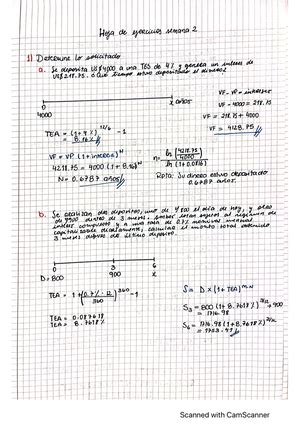 Hoja de ejercicios semana 2
1) Determine lo solicitado
a. Se deposita US$4000 a una TES de 4% y genera un interes de
US$218.75. ¿Qué tiempo estuvo depositado el dinero?
0 x años
4000
VF - VP = interes
VF - 4000 = 218.75
VF = 218.75 + 4000
VF = 4218.75
TEA = (1+4%)^12/6 - 1
= 8.16%
VF = VP (1+interes)^N
4218.75 = 4000 (1+8.16)^N
N = 0.6787 años
n = ln [4218.75/4000] / ln (1+0.0816)
RPTO: Su dinero estuvo depositado
0.6787 años.
b. Se realizan dos depositos, uno de $800 el día de hoy, y otro
de $900 dentro de 3 meses. Si
interes compuesto y a una tasa de 0.7% nominal mensual
capitalizable diariamente, calcular el monto total obtenido
3 meses después de el último deposito.
0 3 6
D=800 900
TEA = 1+(0.7%·12/360)^360 - 1
TEA = 0.087618
TEA = 8.7618%
S = D x (1+TEA)^m/n
S3 = 800 (1+8.7618%)^3/12 + 900
= 1716.98
S6 = 1716.98 (1+8.7618%)^3/12
= 1753.49
Scanned with CamScanner